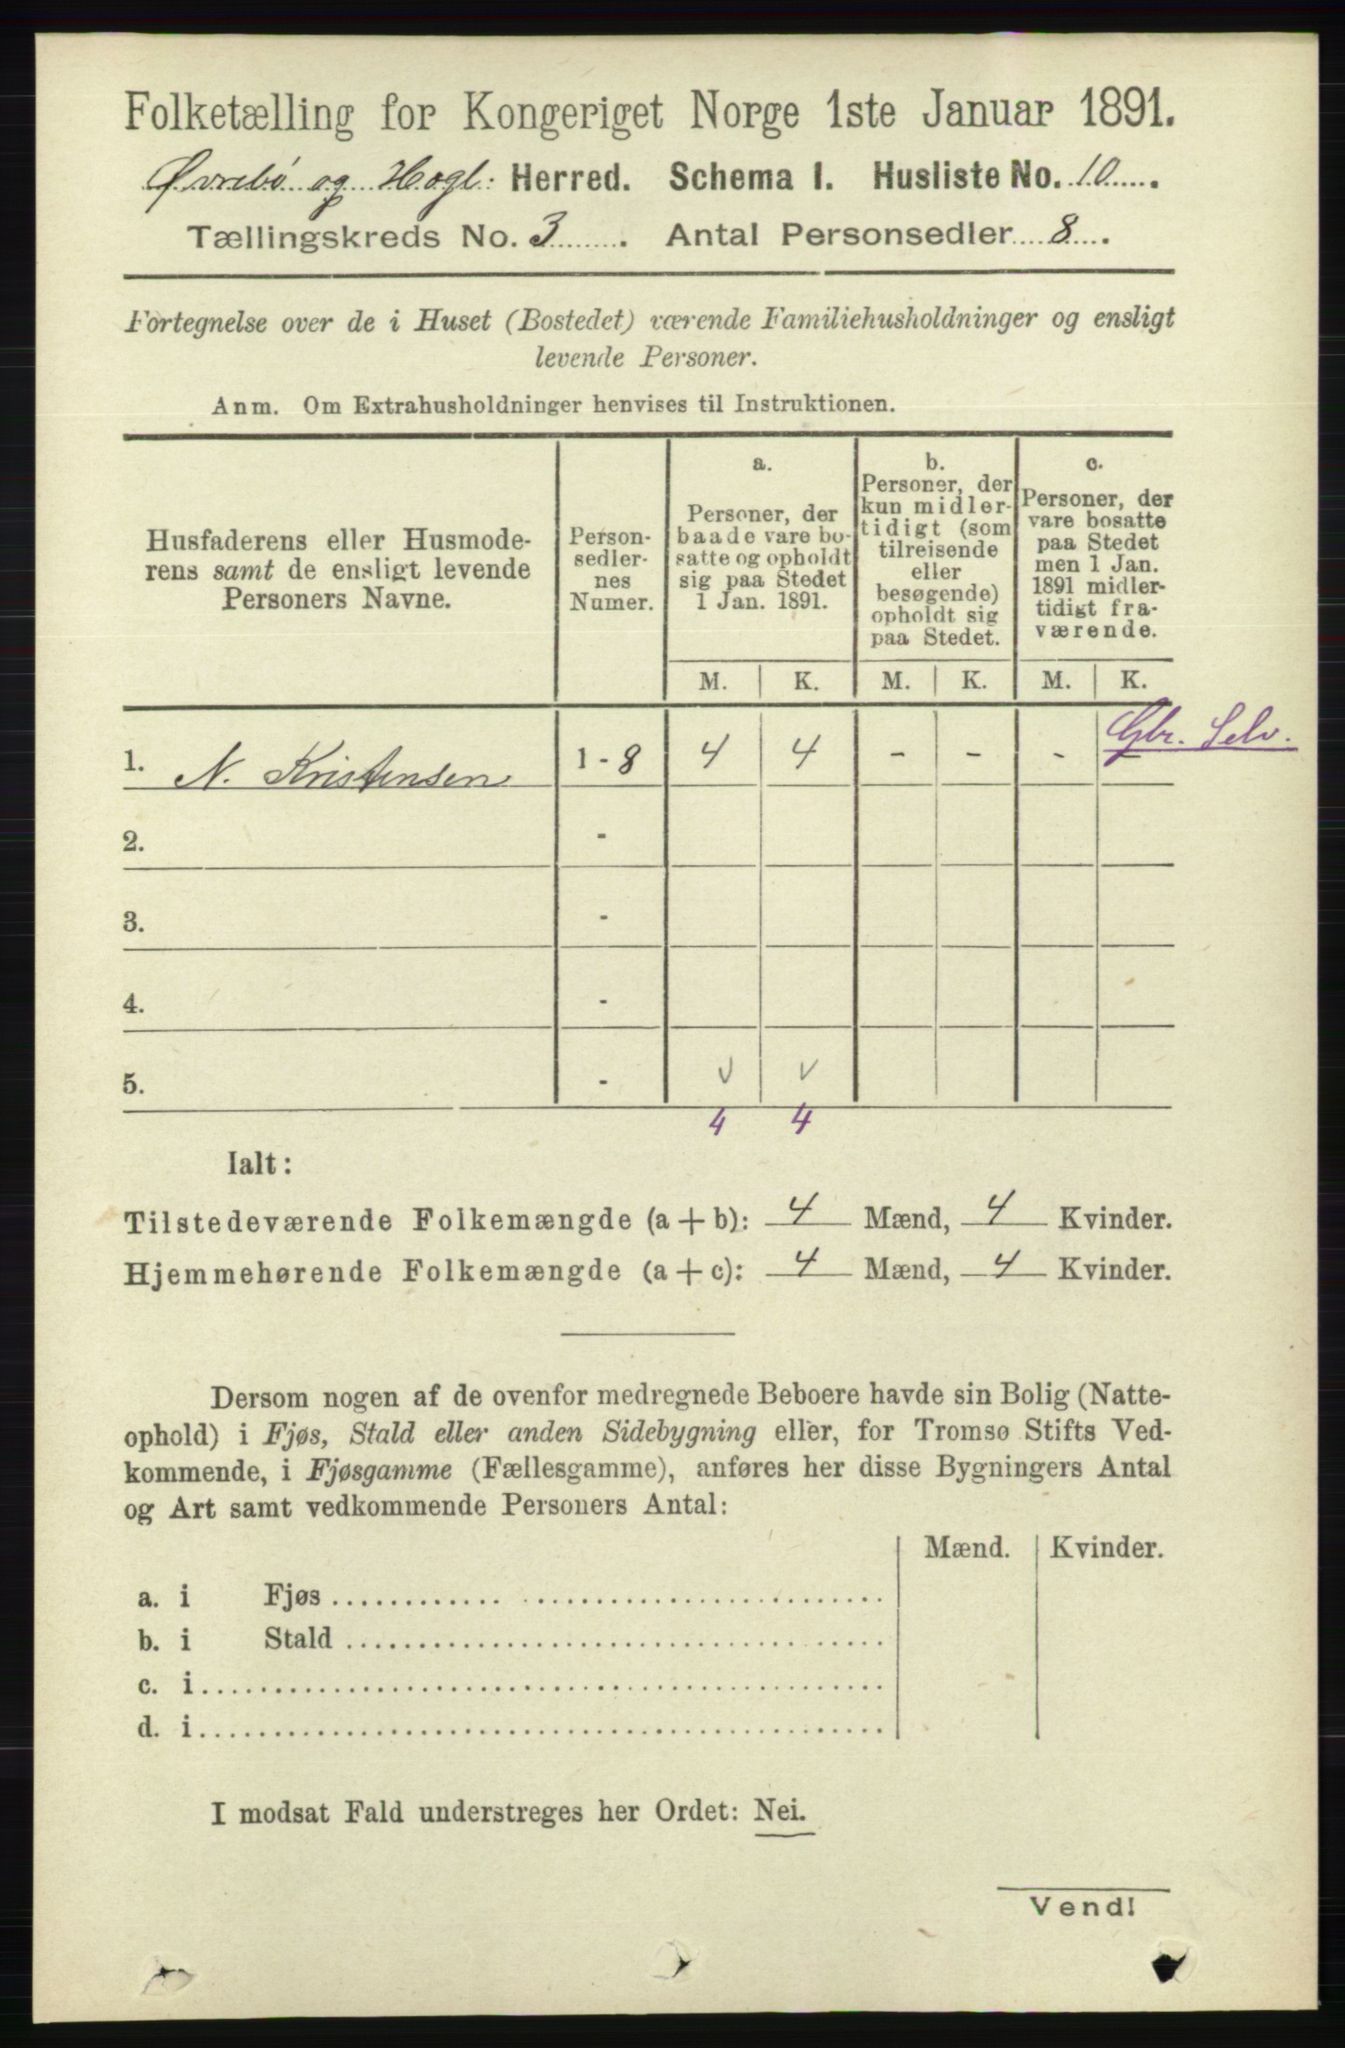 Folketælling for Kongeriget Norge 1ste Januar 1891.
Øvrebö og Hægl: Herred. Schema I. Husliste No. 10.
Tællingskreds No. 3. Antal Personsedler 8.
Fortegnelse over de i Huset (Bostedet) værende Familiehusholdninger og ensligt
levende Personer.
Anm. Om Extrahusholdninger henvises til Instruktionen.
Husfaderens eller Husmode-
rens samt de ensligt levende
Personers Navne.
Person-
sedler-
nes
Numer.
a.
Personer, der
baade vare bo-
satte og opholdt
sig paa Stedet
1 Jan. 1891.
b.
Personer, der
kun midler-
tidigt (som
tilreisende
eller
besøgende)
opholdt sig
paa Stedet.
c.
Personer, der
vare bosatte
paa Stedet
men 1 Jan.
1891 midler-
tidigt fra-
værende.
M. K. M. K. M. K.
Gbr. Selv.
1. N. Kristensen 1-8 4 4 - - -
2. -
3. -
4. -
5. -
4 4
Ialt:
Tilstedeværende Folkemængde (a + b): 4 Mænd, 4 Kvinder.
Hjemmehørende Folkemængde (a + c): 4 Mænd, 4 Kvinder.
Dersom nogen af de ovenfor medregnede Beboere havde sin Bolig (Natte-
ophold) i Fjøs, Stald eller anden Sidebygning eller, for Tromsø Stifts Ved-
kommende, i Fjøsgamme (Fællesgamme), anføres her disse Bygningers Antal
og Art samt vedkommende Personers Antal:
Mænd. Kvinder.
a. i Fjøs
b. i Stald
c. i
d. i
I modsat Fald understreges her Ordet: Nei.
Vend!